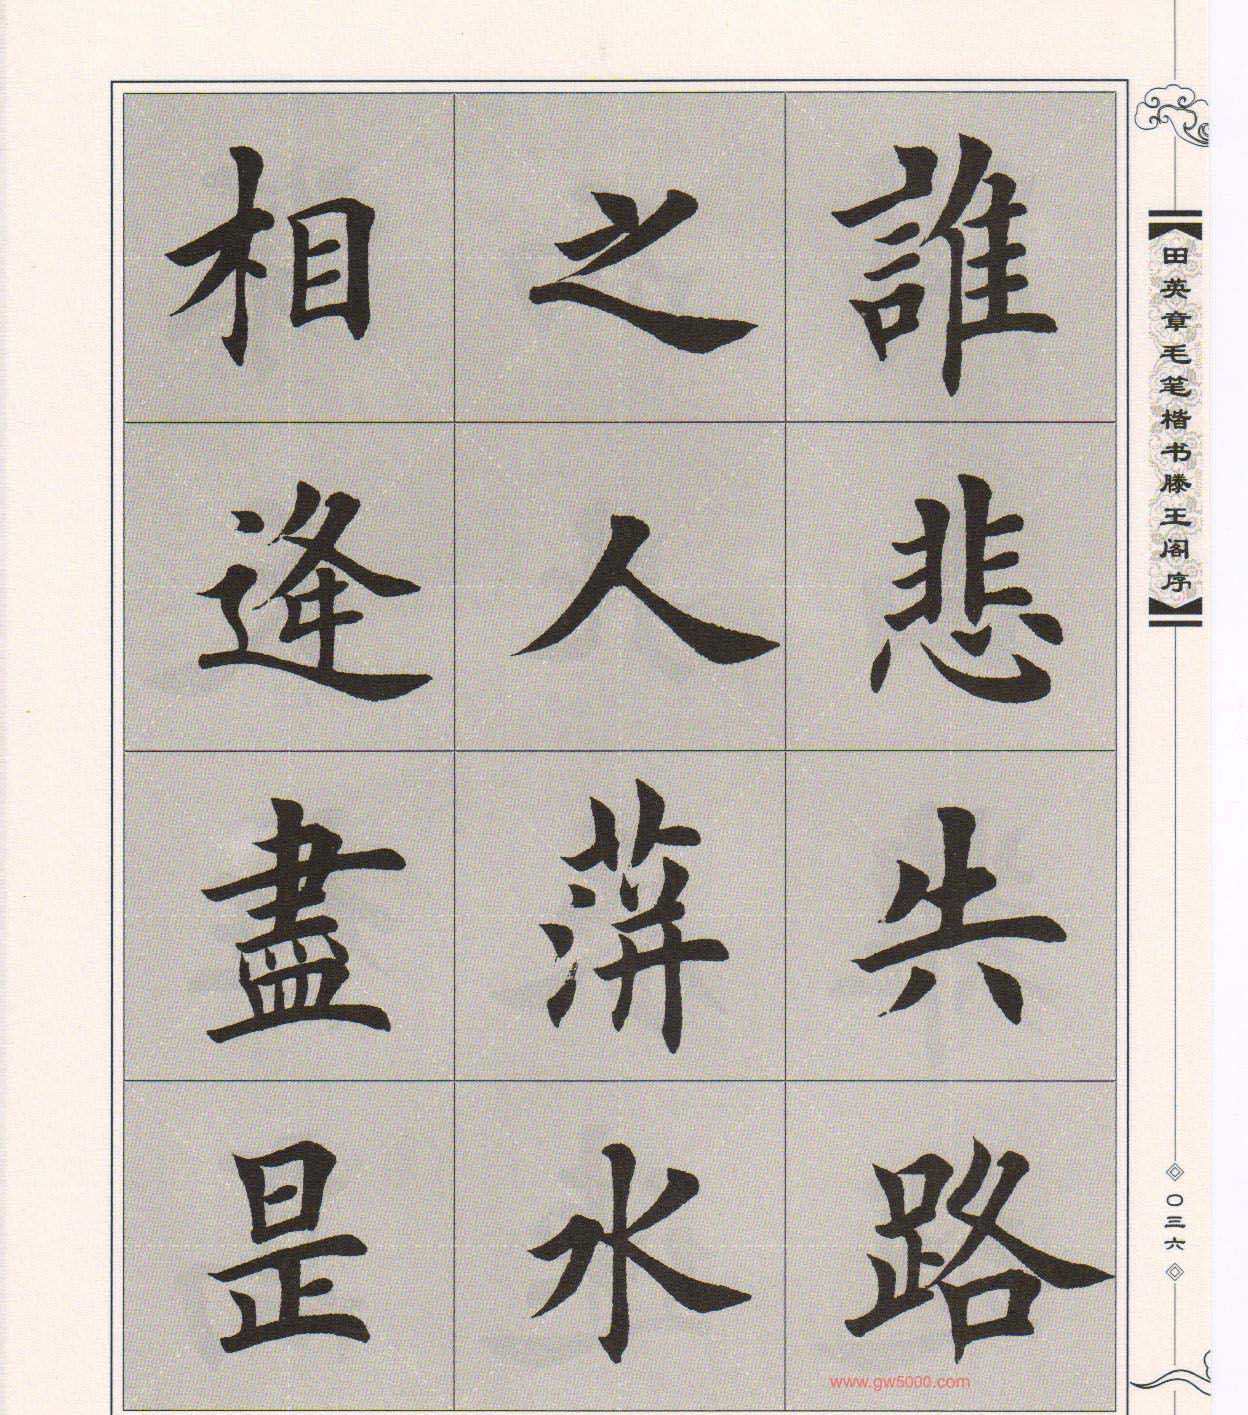 誰悲失路
之人蓱水
相逢盡是
田英章毛笔楷书滕王阁序
〇三六
www.gw5000.com